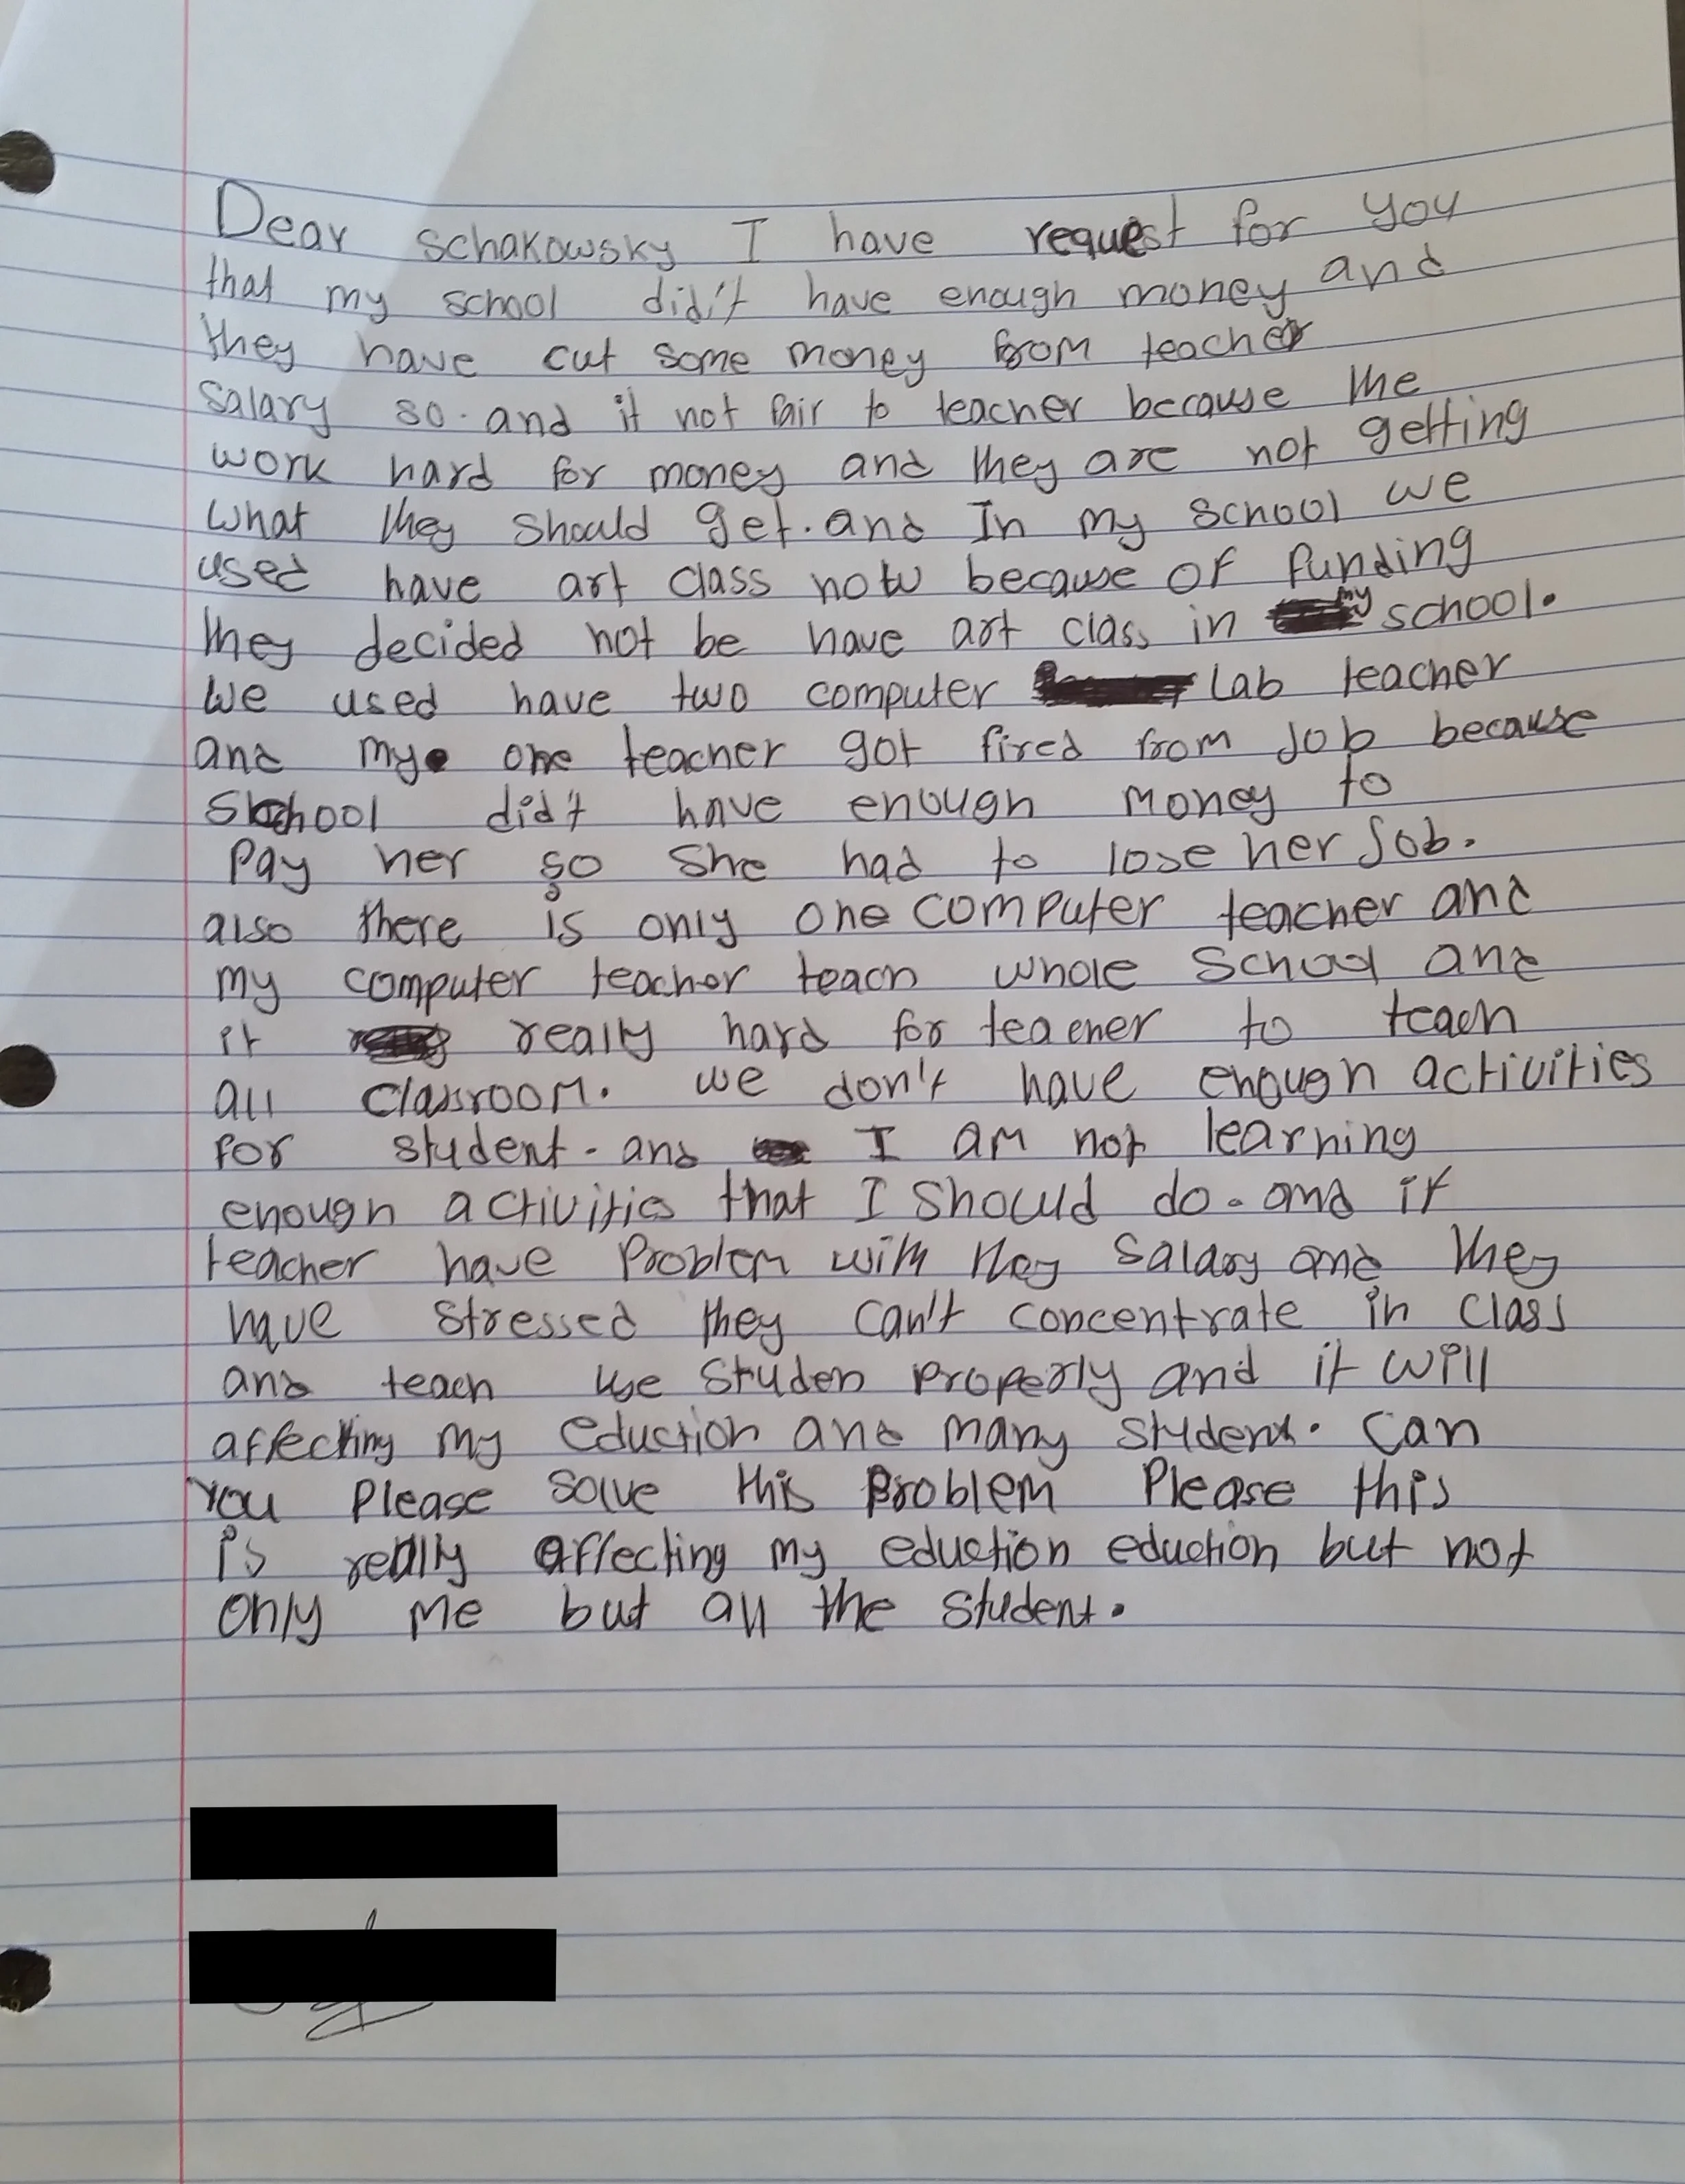 Dear schakowsky I have request for you
that my school did't have enough money and
they have cut some money from teacher
salary so. and it not fair to teacher because the
work hard for money and they are not getting
what they should get. and In my school we
used have art class now because of funding
they decided not be have art class in my school.
We used have two computer Lab teacher
and my one teacher got fired from Job because
school did't have enough money to
Pay her so she had to lose her Job.
also there is only one computer teacher and
my computer teacher teach whole School and
it really hard for teacher to teach
all classroom. we don't have enough activities
for student. and I am not learning
enough activities that I should do. and if
teacher have Problem with they salary and they
have stressed they can't concentrate in class
and teach we studen properly and it will
affecting my eduction and many student. Can
You Please solve this Problem Please this
is really affecting my eduction eduction but not
only me but all the student.